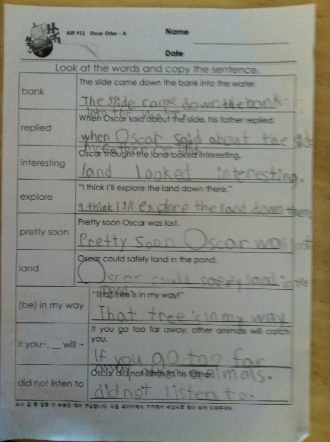 AIR #11 Oscar Otter - A
Name
Date
Look at the words and copy the sentence.
bank
The slide came down the bank into the water.
The slide came down the bank
replied
When Oscar said about the slide, his father replied.
when Oscar said about the
interesting
Oscar thought the land looked interesting.
land looked interesting.
explore
"I think I'll explore the land down there."
I think I'll explore the land down there
pretty soon
Pretty soon Oscar was lost.
Pretty soon Oscar was lost
land
Oscar could safely land in the pond.
Oscar could safely land in the
pond.
(be) in my way
"That tree is in my way!"
That tree is in my way
if you~, __ will ~
If you go too far away, other animals will catch
you.
If you go too far
animals.
did not listen to
Oscar did not listen to his father.
did not listen to.